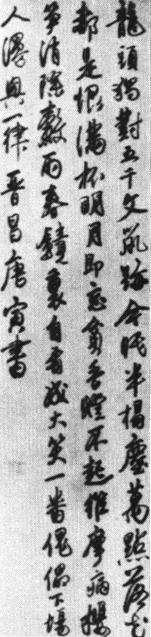 龍頭獨對五千文鼠跡今眠半榻塵萬點落花
都是恨滿杯明月即忘貧香燈不起維摩病櫻
笋消除穀雨春鏡裏自看成大笑一番傀儡下場
人漫興一律 晉昌唐寅書